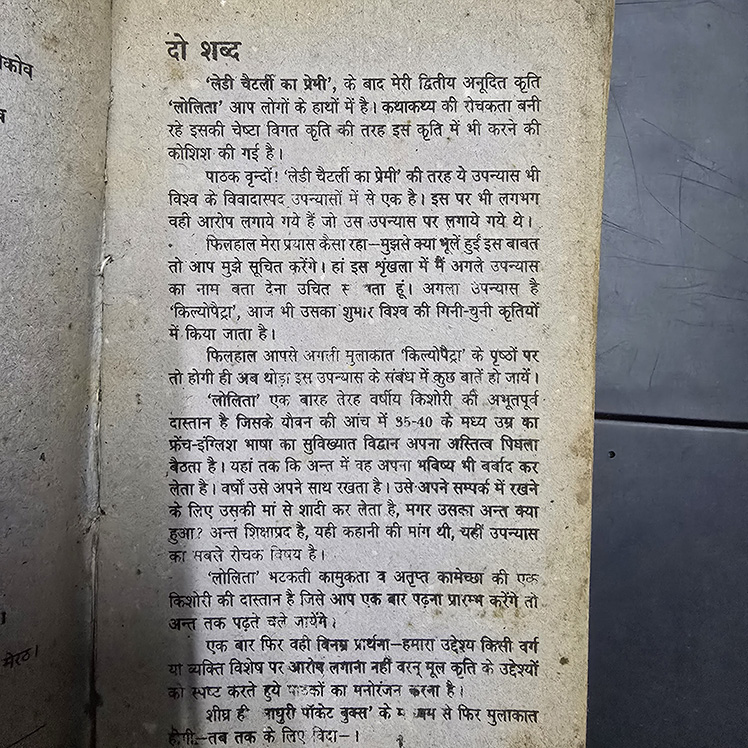 दो शब्द
'लेडी चैटर्ली का प्रेमी', के बाद मेरी द्वितीय अनूदित कृति
'लोलिता' आप लोगों के हाथों में है। कथाकथ्य की रोचकता बनी
रहे इसकी चेष्टा विगत कृति की तरह इस कृति में भी करने की
कोशिश की गई है।
पाठक वृन्दों! 'लेडी चैटर्ली का प्रेमी' की तरह ये उपन्यास भी
विश्व के विवादास्पद उपन्यासों में से एक है। इस पर भी लगभग
वही आरोप लगाये गये हैं जो उस उपन्यास पर लगाये गये थे।
फिलहाल मेरा प्रयास कैसा रहा—मुझसे क्या भूलें हुईं इस बाबत
तो आप मुझे सूचित करेंगे। हां इस शृंखला में मैं अगले उपन्यास
का नाम बता देना उचित हूं। अगला उपन्यास है
'किल्योपैट्रा', आज भी उसका शुमार विश्व की गिनी-चुनी कृतियों
में किया जाता है।
फिलहाल आपसे अगली मुलाकात 'किल्योपैट्रा' के पृष्ठों पर
तो होगी ही अब थोड़ा इस उपन्यास के संबंध में कुछ बातें हो जायें।
'लोलिता' एक बारह तेरह वर्षीय किशोरी की अभूतपूर्व
दास्तान है जिसके यौवन की आंच में 35-40 के मध्य उम्र का
फ्रेंच-इंग्लिश भाषा का सुविख्यात विद्वान अपना अस्तित्व पिघला
बैठता है। यहां तक कि अन्त में वह अपना भविष्य भी बर्बाद कर
लेता है। वर्षों उसे अपने साथ रखता है। उसे अपने सम्पर्क में रखने
के लिए उसकी मां से शादी कर लेता है, मगर उसका अन्त क्या
हुआ? अन्त शिक्षाप्रद है, यही कहानी की मांग थी, यही उपन्यास
का सबसे रोचक विषय है।
'लोलिता' भटकती कामुकता व अतृप्त कामेच्छा की एक
किशोरी की दास्तान है जिसे आप एक बार पढ़ना प्रारम्भ करेंगे तो
अन्त तक पढ़ते चले जायेंगे।
एक बार फिर वही विनम्र प्रार्थना—हमारा उद्देश्य किसी वर्ग
या व्यक्ति विशेष पर आरोप लगाना नहीं वरन् मूल कृति के उद्देश्यों
को स्पष्ट करते हुये पाठकों का मनोरंजन करना है।
शीघ्र ही पॉकेट बुक्स' के से फिर मुलाकात
होगी—तब तक के लिए विदा—।
मेरठ।